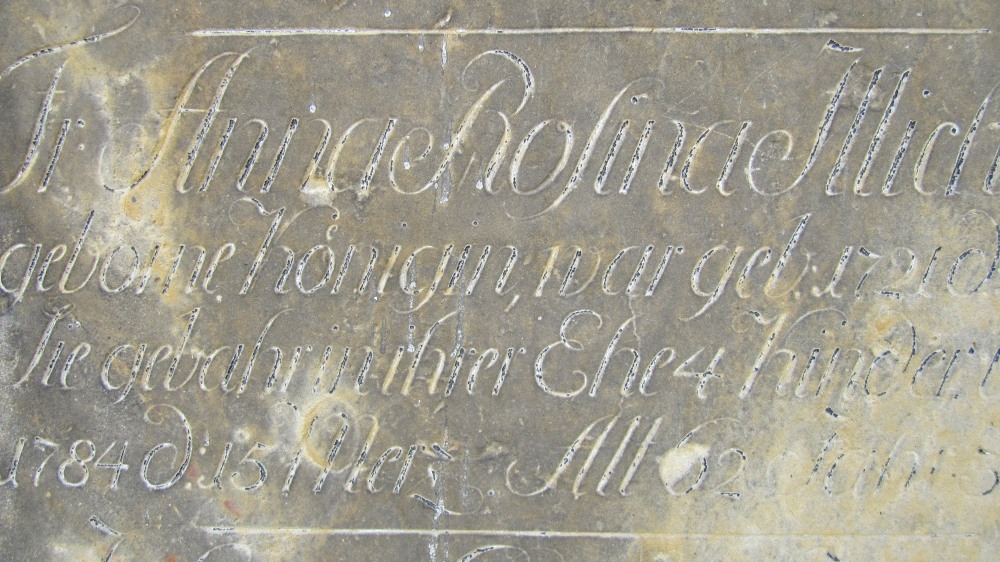 Fr. Anna Rosina Illich
geborne Königin, war geb. 1721 d
Sie gebahr in ihrer Ehe 4 Kinder
1784 d. 15 Merz. Alt 62 Jahr 3